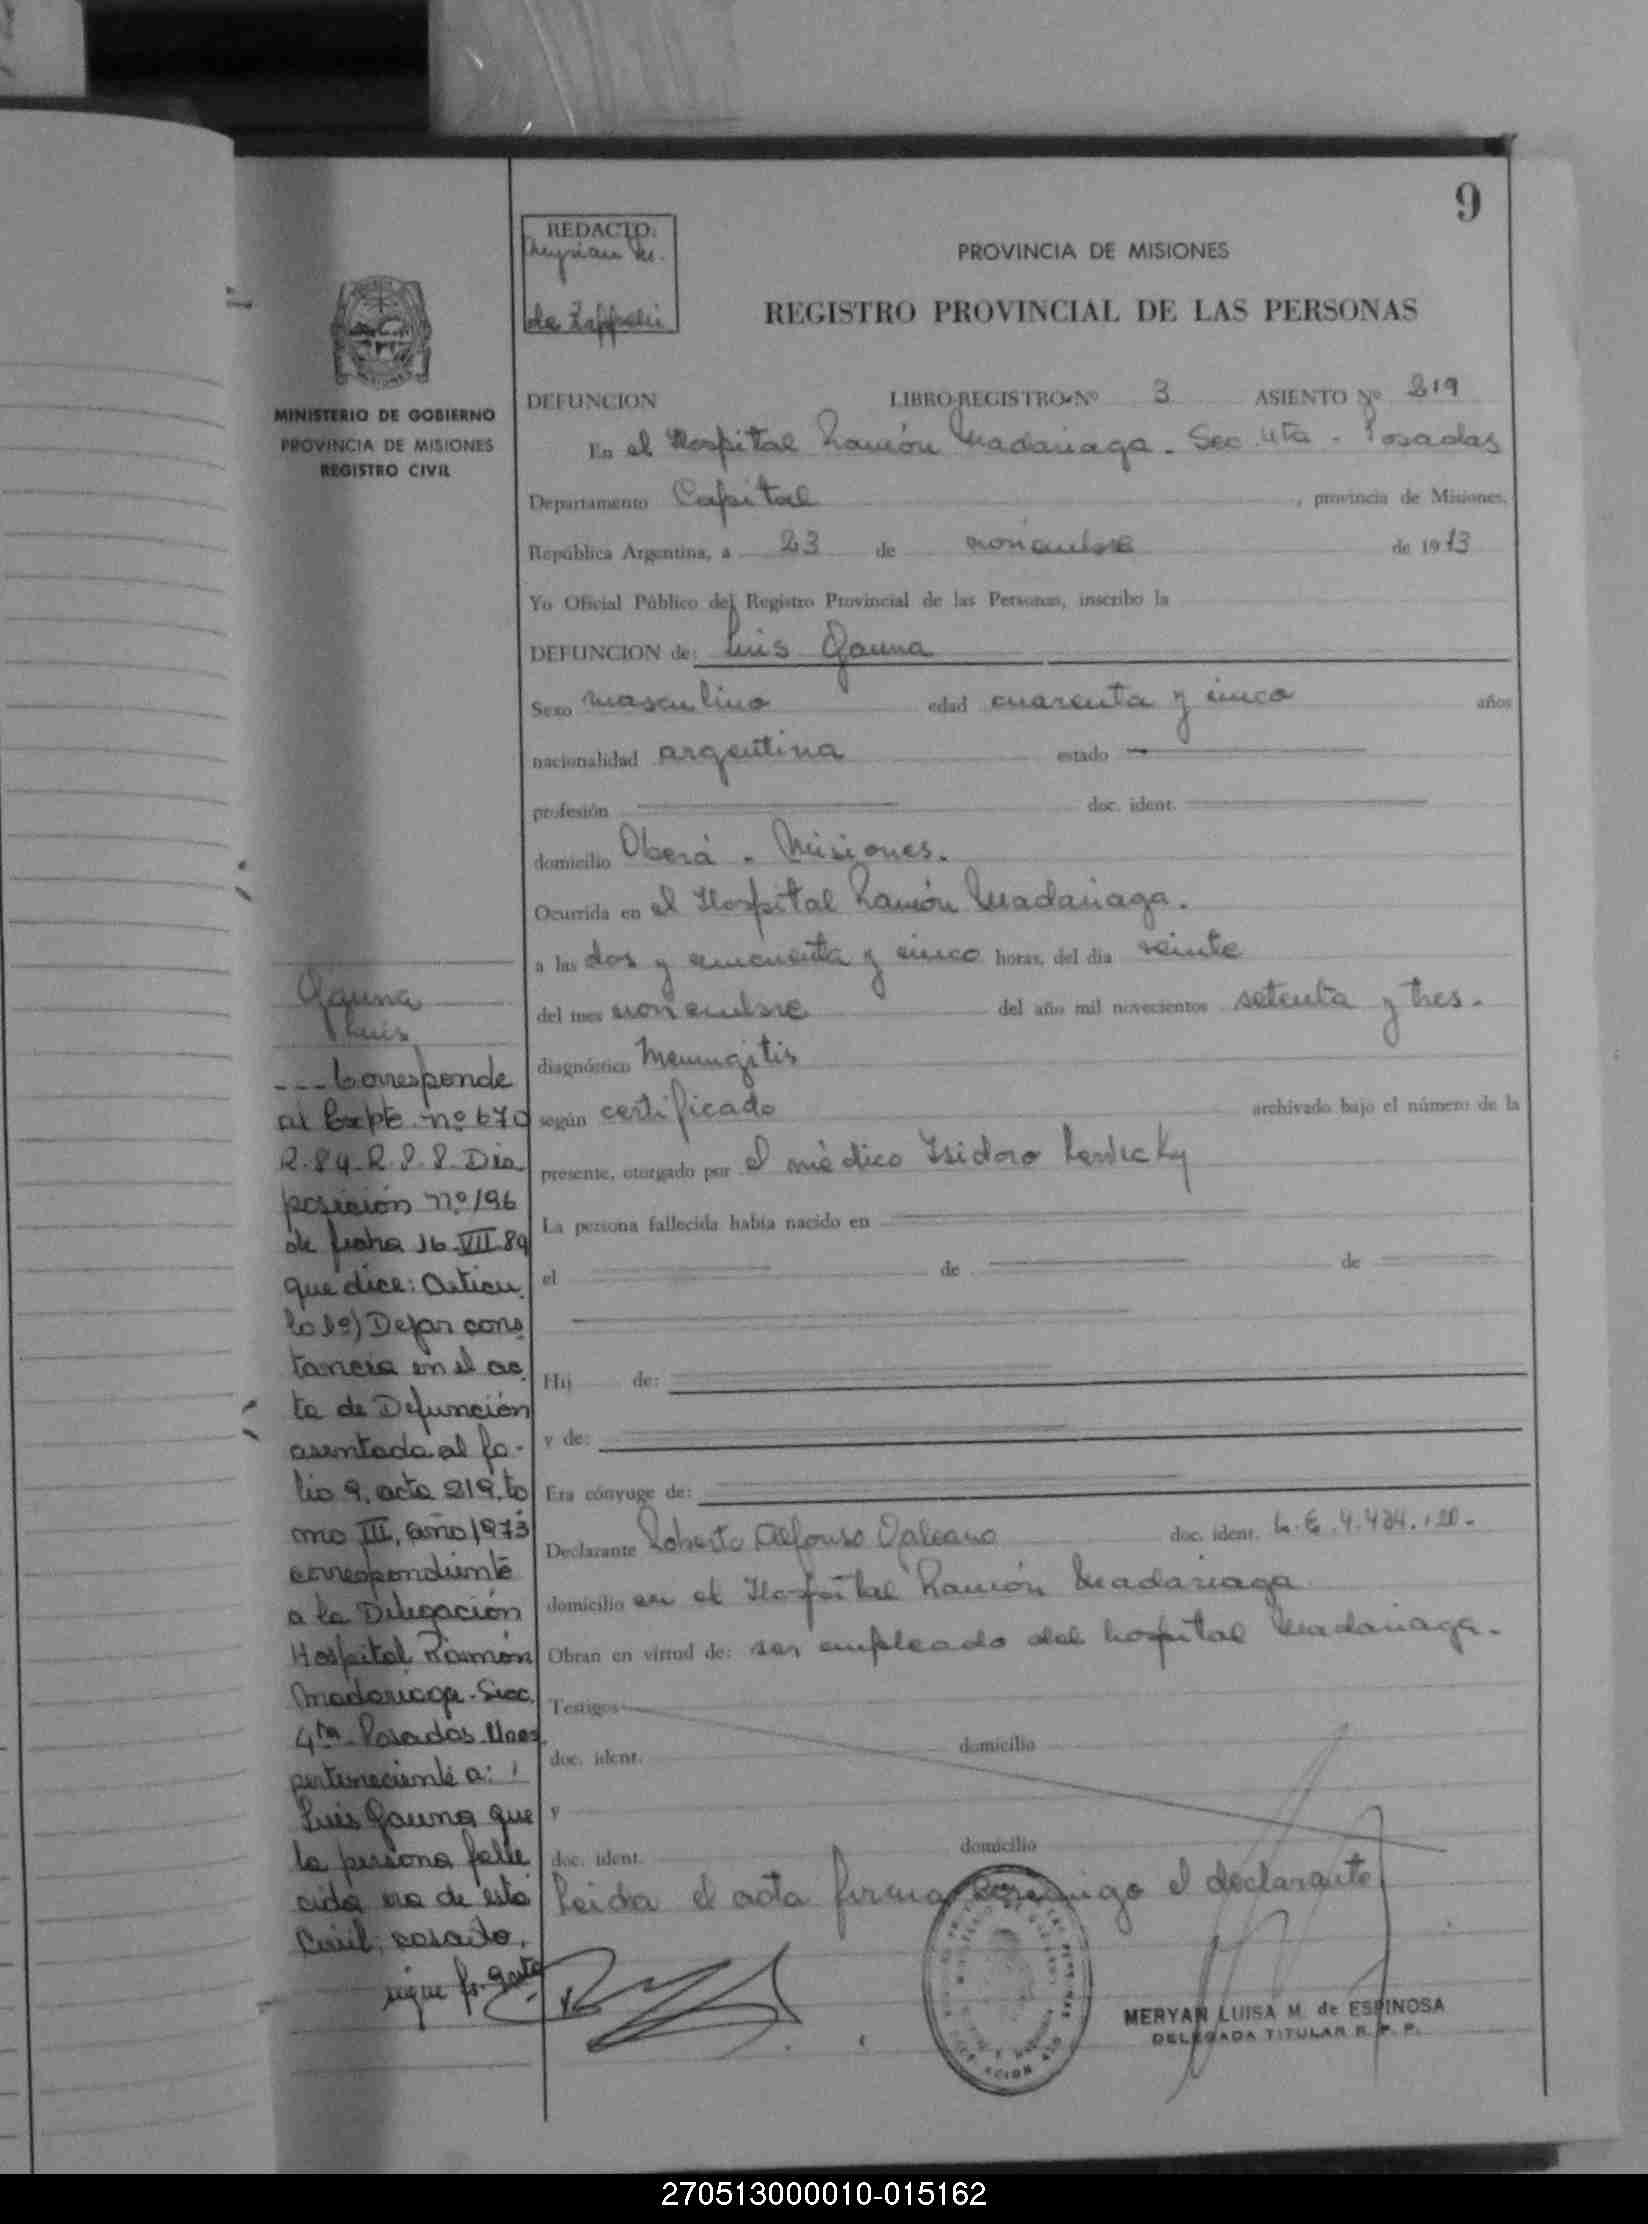 9
REDACTO:
Meyrian M.
de Zappelli
PROVINCIA DE MISIONES
REGISTRO PROVINCIAL DE LAS PERSONAS
MINISTERIO DE GOBIERNO
PROVINCIA DE MISIONES
REGISTRO CIVIL
DEFUNCION LIBRO-REGISTRO Nº 3 ASIENTO Nº 219
En el Hospital Ramón Madariaga - Sec 4ta - Posadas
Departamento Capital, provincia de Misiones,
República Argentina, a 23 de noviembre de 1973
Yo Oficial Público del Registro Provincial de las Personas, inscribo la
DEFUNCION de: Luis Gauna
Sexo masculino edad cuarenta y cinco años
nacionalidad argentina estado
profesión doc. ident.
domicilio Oberá - Misiones.
Ocurrida en el Hospital Ramón Madariaga.
a las dos y cincuenta y cinco horas, del día veinte
del mes noviembre del año mil novecientos setenta y tres.
diagnóstico Meningitis
según certificado archivado bajo el número de la
presente, otorgado por el médico Isidoro
La persona fallecida había nacido en
el de de
Hij de:
y de:
Era cónyuge de:
Declarante Roberto Alfonso Galeano doc. ident. L.E. 
domicilio en el Hospital Ramón Madariaga
Obran en virtud de: ser empleado del hospital Madariaga.
Testigos
doc. ident. domicilio
y
doc. ident. domicilio
Leida el acta firma conmigo el declarante
MERYAN LUISA M. de ESPINOSA
DELEGADA TITULAR R. P. P.
Gauna
Luis
--- Corresponde
al Expte. nº 670
R. 89. R. P. P. Dis
posición nº 196
de fecha 16-VII-89
que dice: Articu
lo 1º) Dejar cons
tancia en el ac
ta de Defunción
asentada al fo-
lio 9, acta 219, to
mo III, año 1973
correspondiente
a la Delegación
Hospital Ramón
Madariaga - Secc.
4ta Posadas Mnes.
perteneciente a:
Luis Gauna que
la persona falle
cida era de esta
Civil; casado,
sigue fs.
270513000010-015162